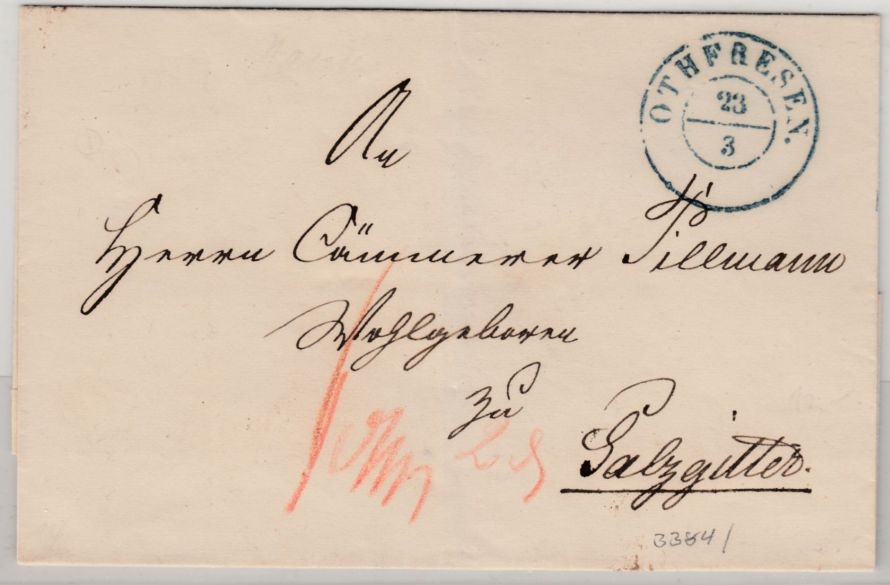 OTHFRESEN.
23
3
An
Herrn Cämmerer Pillmann
Wohlgeboren
zu
Salzgitter.
3384/